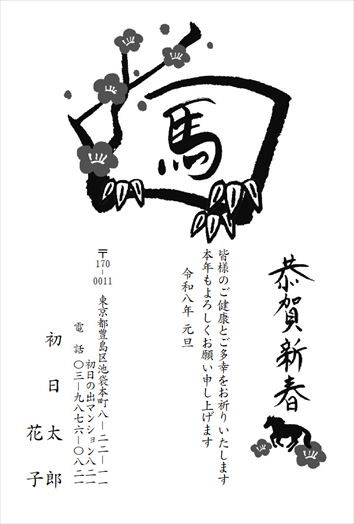 馬
恭賀新春
皆様のご健康とご多幸をお祈りいたします
本年もよろしくお願い申し上げます
令和八年 元旦
〒170-0011
東京都豊島区池袋本町八-二二-一一
初日の出マンション八二一
電話 〇三-九八七六-〇八二一
初日 太郎
花子